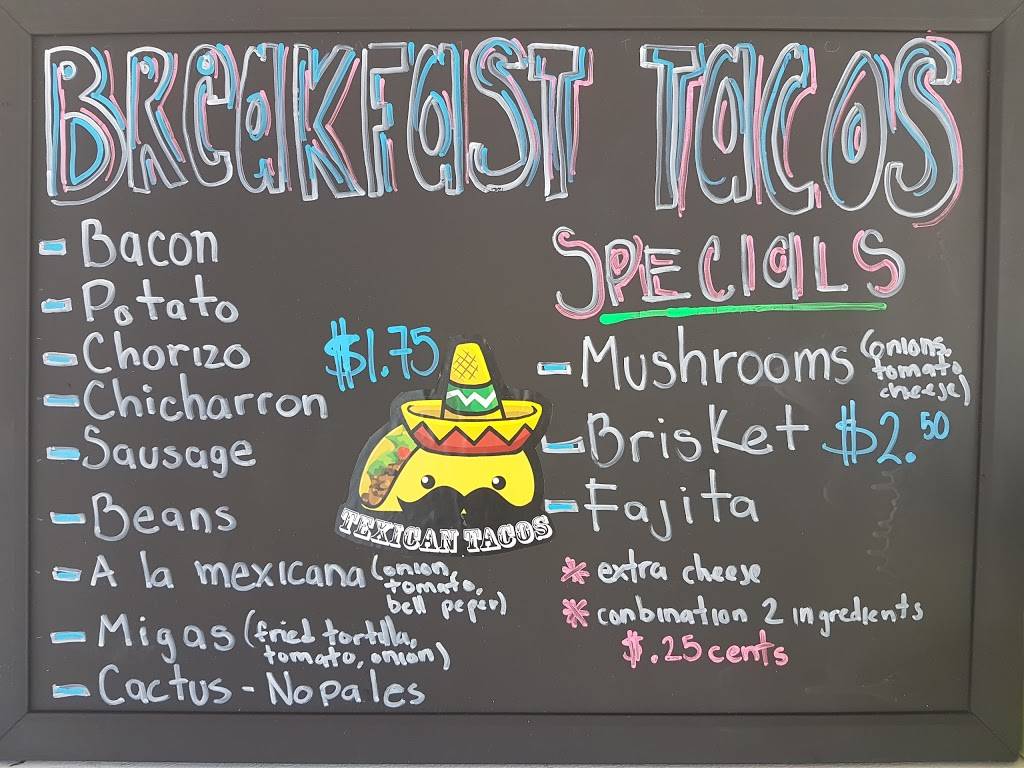 BREAKFAST TACOS
- Bacon
- Potato
- Chorizo
- Chicharron
$1.75
- Sausage
- Beans
- A la mexicana (onion,
tomato,
bell peper)
- Migas (fried tortilla,
tomato, onion)
- Cactus - Nopales
TEXICAN TACOS
SPECIALS
- Mushrooms (onions,
tomato
cheese)
- Brisket $2.50
- Fajita
* extra cheese
* combination 2 ingredients
$.25 cents